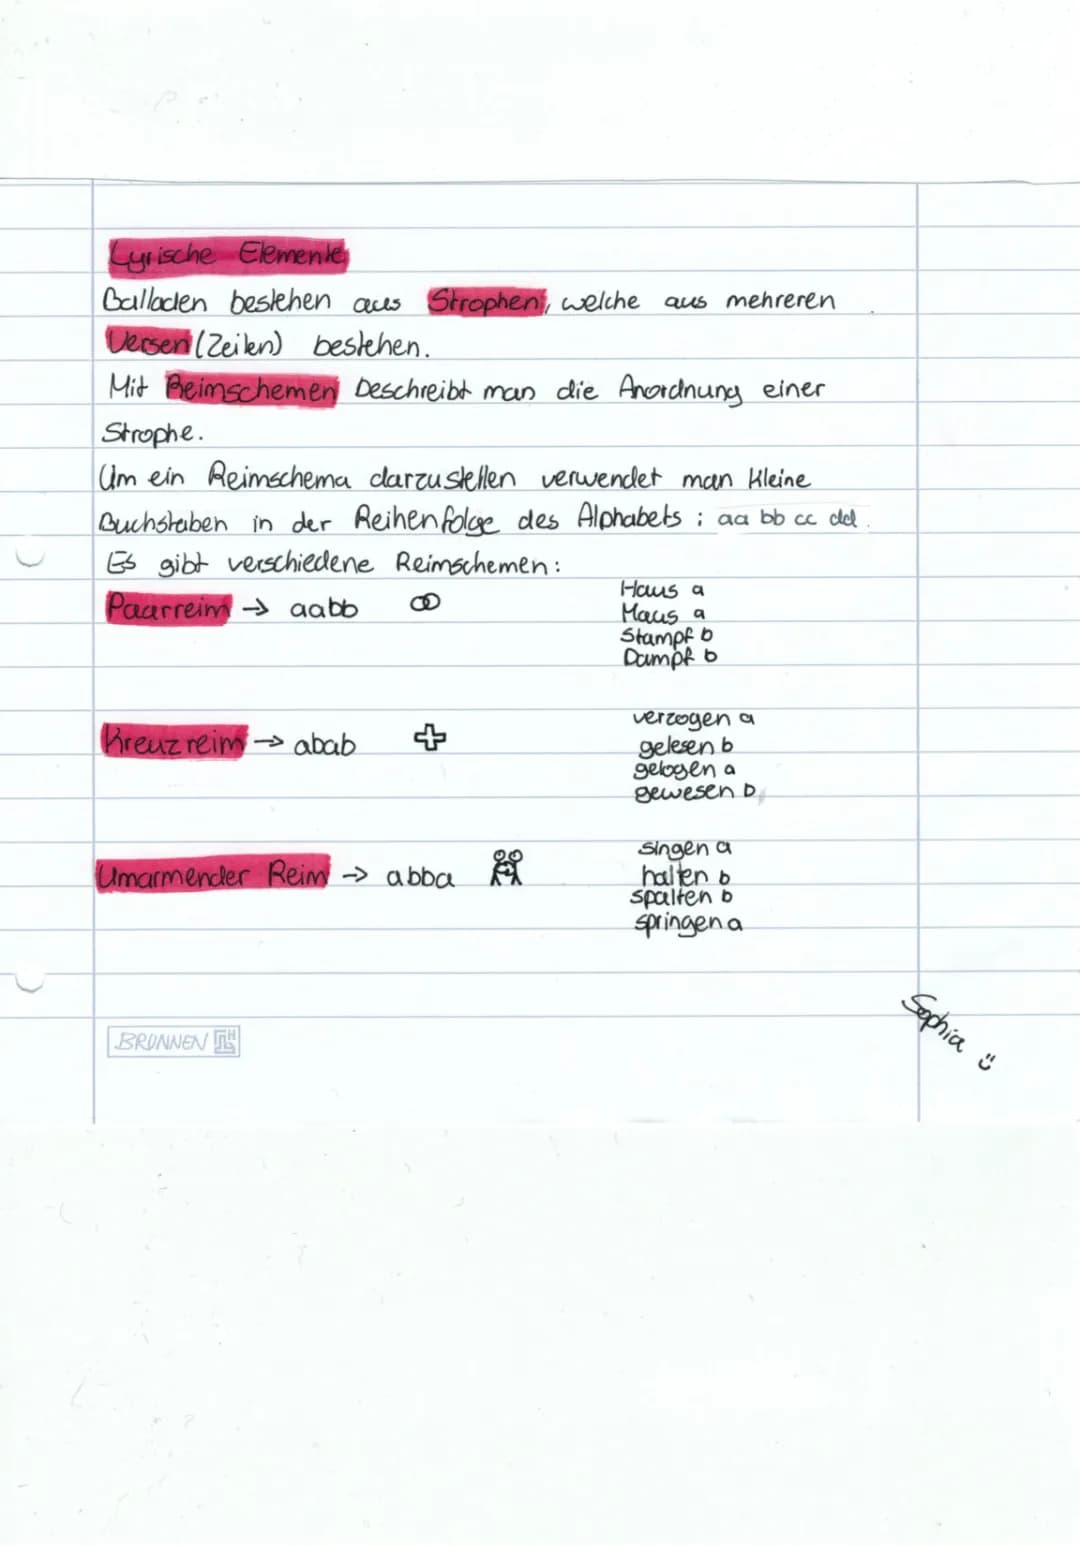 Lyrische Elemente
Balladen bestehen aus Strophen, welche aus mehreren
Versen (Zeilen) bestehen.
Mit Reimschemen beschreibt man die Anordnung einer
Strophe.
Um ein Reimschema darzustellen verwendet man kleine
Buchstaben in der Reihenfolge des Alphabets : aa bb cc dd.
Es gibt verschiedene Reimschemen:
Paarreim → aabb
Haus a
Maus a
Stampf b
Dampf b
Kreuzreim → abab
verzogen a
gelesen b
gelogen a
gewesen b
Umarmender Reim → abba
singen a
halten b
spalten b
springen a
Sophia
BRUNNEN